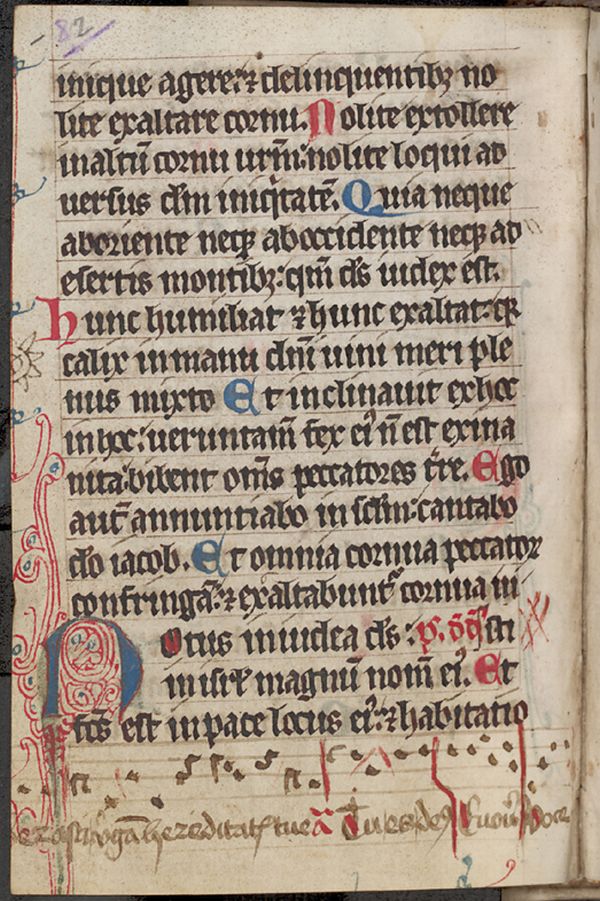 82
inique agere: ⁊ delinquentibꝫ no
lite exaltare cornu. Nolite extollere
inaltū cornu urm̄: nolite loqui ad
uersus dm̄ iniq̇tatē. Quia neque
aboriente neqꝫ aboccidente neqꝫ ad
esertis montibꝫ: qm̄ ds̄ iudex est.
Hunc humiliat ⁊ hunc exaltat: qꝛ
calix inmanu dm̄i uini meri ple
nus mixto Et inclinauit exhoc
inhoc: ueruntam̄ fex eiꝰ n̄ est exina
nita: bibent om̄s peccatores t̄re. Ego
aut̄ annuntiabo insclm̄: cantabo
do iacob. Et omnia cornua peccatoꝝ
confringā: ⁊ exaltabunt᷑ cornua iu
Notus iniudea ds̄: sti
in isrl̄ magnū nom̄ eiꝰ. Et
fcs̄ est inpace locus eiꝰ: ⁊ habitatio
hereditatꝭ tue Tu es deꝰ